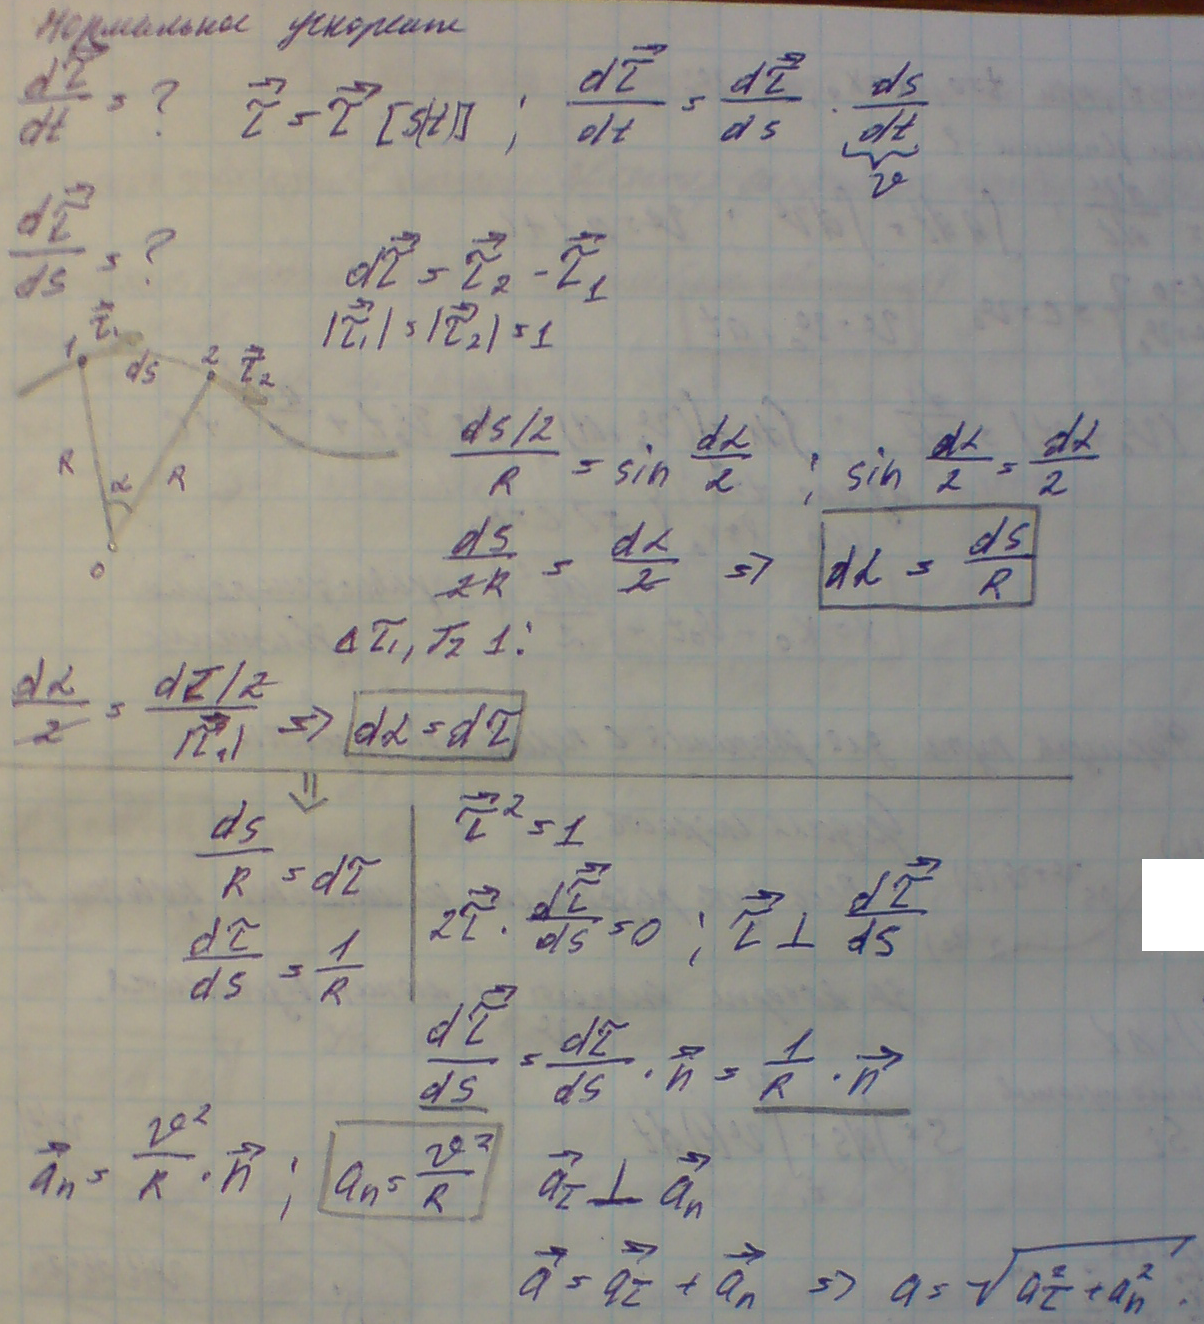 Нормальное ускорение
dτ⃗/dt = ? τ⃗ = τ⃗ [s(t)] ; dτ⃗/dt = dτ⃗/ds · ds/dt
v
dτ⃗/ds = ? dτ⃗ = τ⃗₂ - τ⃗₁
|τ⃗₁| = |τ⃗₂| = 1
τ⃗₁
1 ds 2 τ⃗₂
R α R
O
(ds/2)/R = sin dα/2 ; sin dα/2 = dα/2
ds/2R = dα/2 => dα = ds/R
Δ τ₁, τ₂ 1:
dα/2 = (dτ/2)/|τ⃗₁| => dα = dτ
⇓
ds/R = dτ
dτ/ds = 1/R
τ⃗² = 1
2τ⃗ · dτ⃗/ds = 0 ; τ⃗ ⊥ dτ⃗/ds
dτ⃗/ds = dτ/ds · n⃗ = 1/R · n⃗
a⃗n = v²/R · n⃗ ; an = v²/R a⃗τ ⊥ a⃗n
a⃗ = a⃗τ + a⃗n => a = √(aτ² + an²).